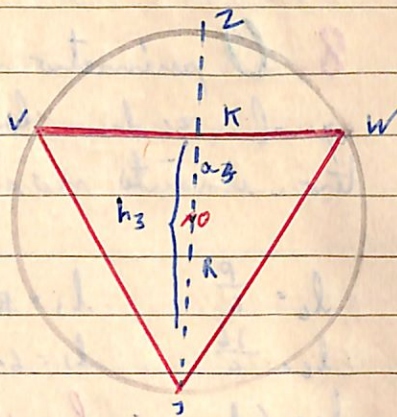 Z
V K W
a₃
h₃
O
R
J